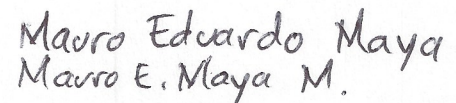 Mauro Eduardo Maya
Mauro E. Maya M.